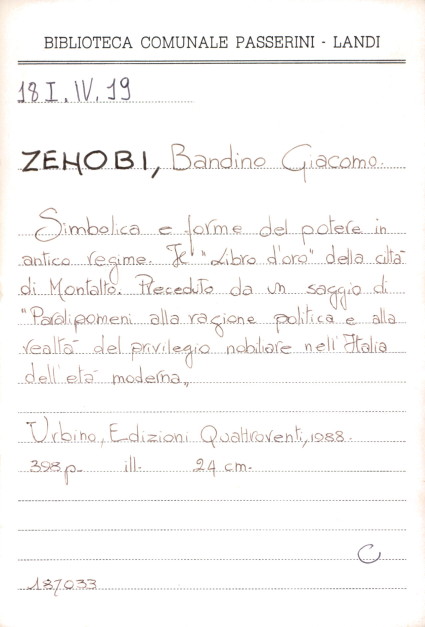 BIBLIOTECA COMUNALE PASSERINI - LANDI
18 I. IV. 19
ZENOBI, Bandino Giacomo.
Simbolica e forme del potere in
antico regime. Il "Libro d'oro" della città
di Montalto. Preceduto da un saggio di
"Paralipomeni alla ragione politica e alla
realtà del privilegio nobiliare nell'Italia
dell'età moderna„
Urbino, Edizioni Quattroventi, 1988.
398 p. ill. 24 cm.
C
187033